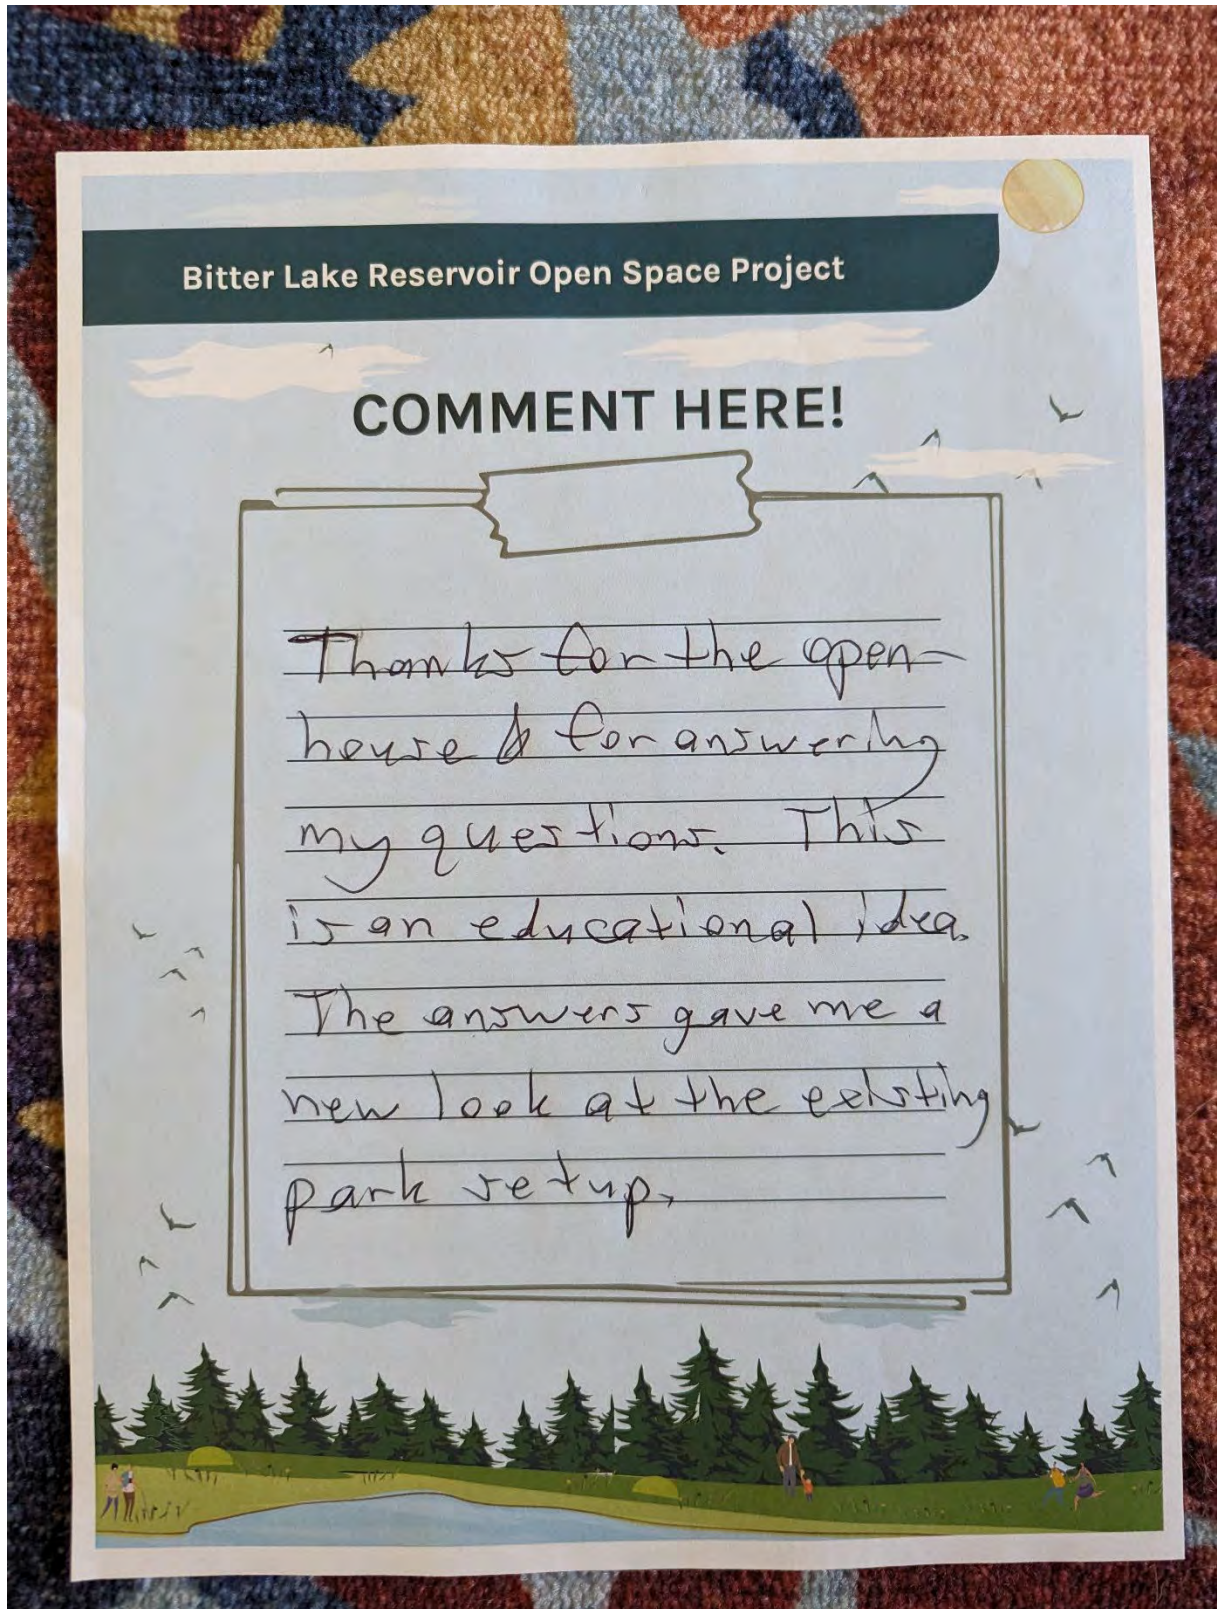 Bitter Lake Reservoir Open Space Project
COMMENT HERE!
Thanks for the open-
house & for answering
my questions. This
is an educational idea.
The answers gave me a
new look at the existing
park setup.